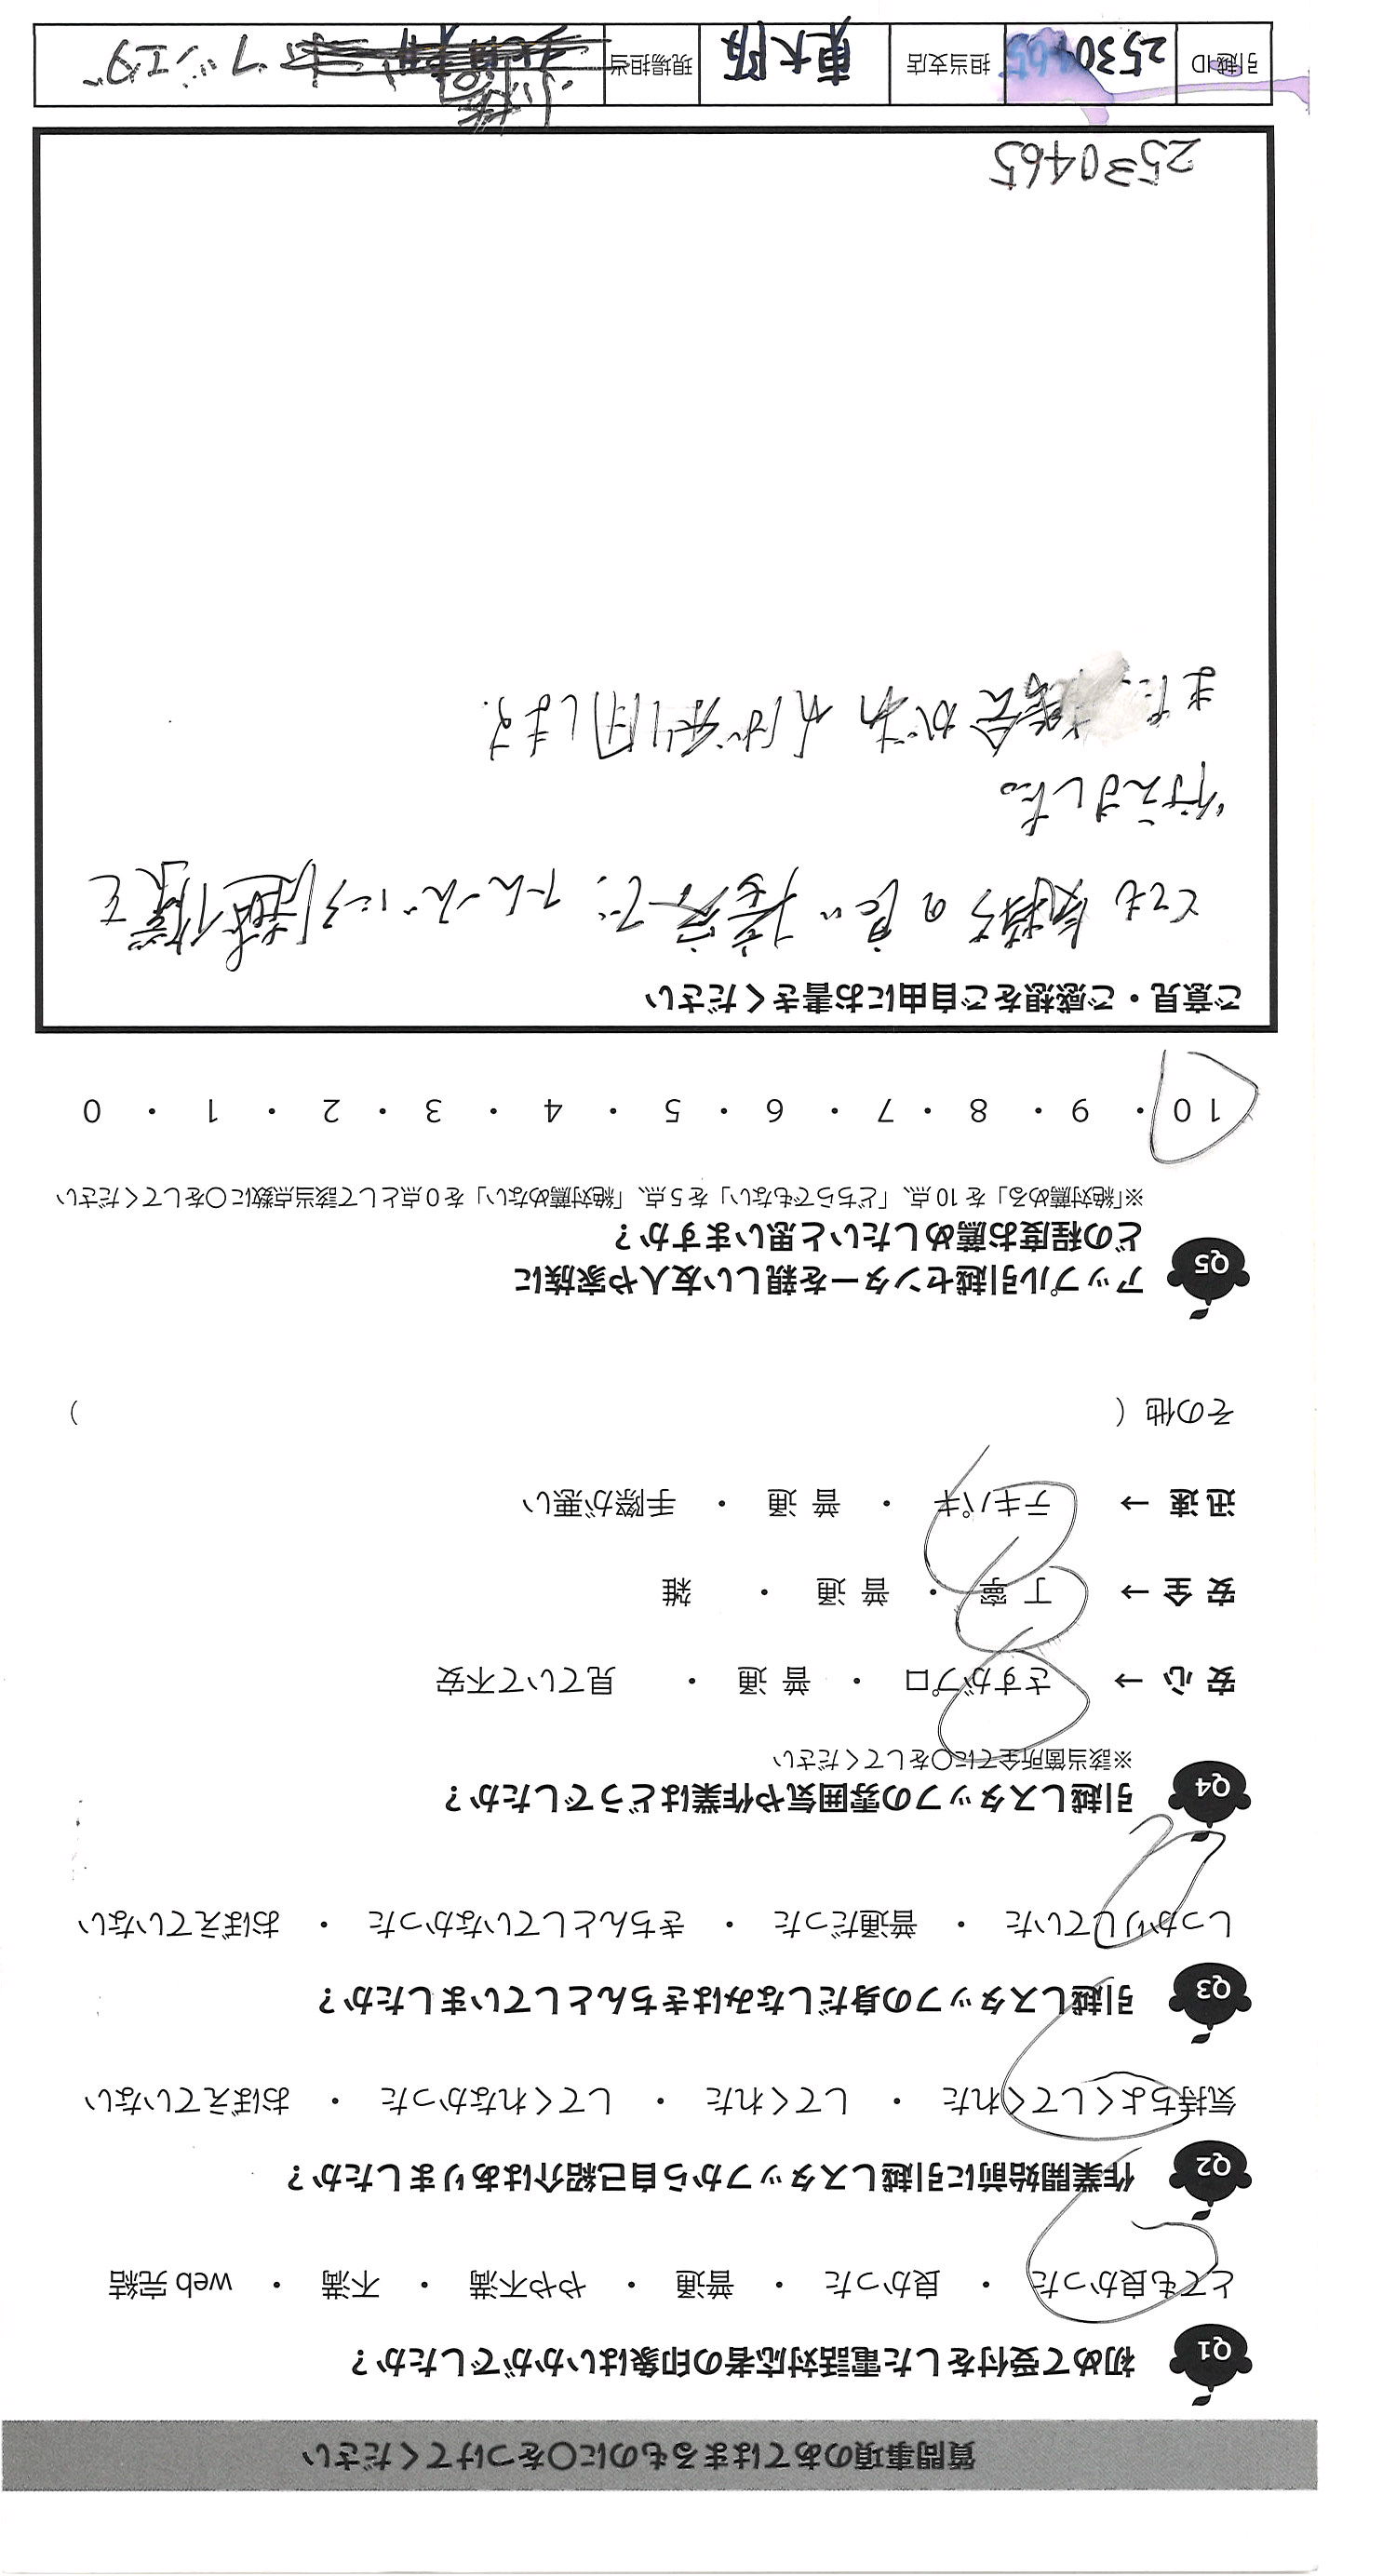 質問事項のあてはまるものに○をつけてください
Q1 初めて受付をした電話対応者の印象はいかがでしたか?
とても良かった ・ 良かった ・ 普通 ・ やや不満 ・ 不満 ・ web 完結
Q2 作業開始前に引越しスタッフから自己紹介はありましたか?
気持ちよくしてくれた ・ してくれた ・ してくれなかった ・ おぼえていない
Q3 引越しスタッフの身だしなみはきちんとしていましたか?
しっかりしていた ・ 普通だった ・ きちんとしていなかった ・ おぼえていない
Q4 引越しスタッフの雰囲気や作業はどうでしたか?
※該当箇所全てに○をしてください
安心 → さすがプロ ・ 普通 ・ 見ていて不安
安全 → 丁寧 ・ 普通 ・ 雑
迅速 → テキパキ ・ 普通 ・ 手際が悪い
その他 ( )
Q5 アップル引越センターを親しい友人や家族に
どの程度お薦めしたいと思いますか?
※「絶対薦める」を10点、「どちらでもない」を5点、「絶対薦めない」を0点として該当点数に○をしてください
10 ・ 9 ・ 8 ・ 7 ・ 6 ・ 5 ・ 4 ・ 3 ・ 2 ・ 1 ・ 0
ご意見・ご感想をご自由にお書きください
とても気持ちの良い接客で、スムーズに引越作業を
行えました。
また、機会があれば利用します.
2530465
引越ID 2530465 担当支店 東大阪 現場担当 フジエダ